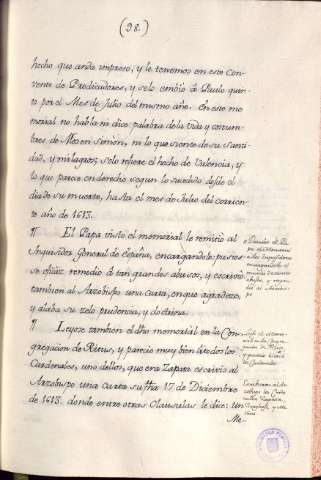 (98.)
hecho que anda impreso, y le tenemos en este con-
vento de Predicadores, y se lo embió á Paulo quin-
to por el Mes de Julio del mismo año. En este me
morial no habla ni dice palabra de la vida y costum-
bres de Mosen Simon, ni lo que siente de su santi-
dad, y milagros; solo refiere el hecho de Valencia, y
lo que parece en derecho segun lo sucedido desde el
dia de su muerte, hasta el mes de Julio del corrien-
te año de 1613.
¶ El Papa visto el memorial le remitió al
Inquisidor General de España, encargandole pusies-
se eficaz remedio á tan grandes abusos, y escrivió
tambien al Arzobispo una carta, en que agradeze,
y alaba su zelo, prudencia, y doctrina.
¶ Leyose tambien el dho memorial en la Con-
gregacion de Ritus, y pareció muy bien á todos los
Cardenales, uno dellos, que era Zapata escrivió al
Arzobispo una carta su fha 17 de Diciembre
de 1613. donde entre otras Clausulas le dice: Un
Me-